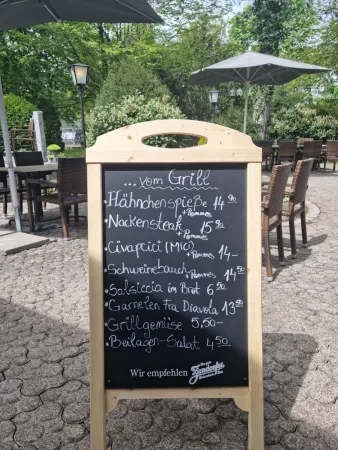 ...vom Grill
• Hähnchenspieße 14.90
+ Pommes
• Nackensteak 15.90
+ Pommes
• Civapcici (Mici) + Pommes 14,-
• Schweinebauch + Pommes 14.50
• Salsiccia im Brot 6.50
• Garnelen Fra Diavola 13.90
• Grillgemüse 5,50-
• Beilagen-Salat 4.50
Wir empfehlen